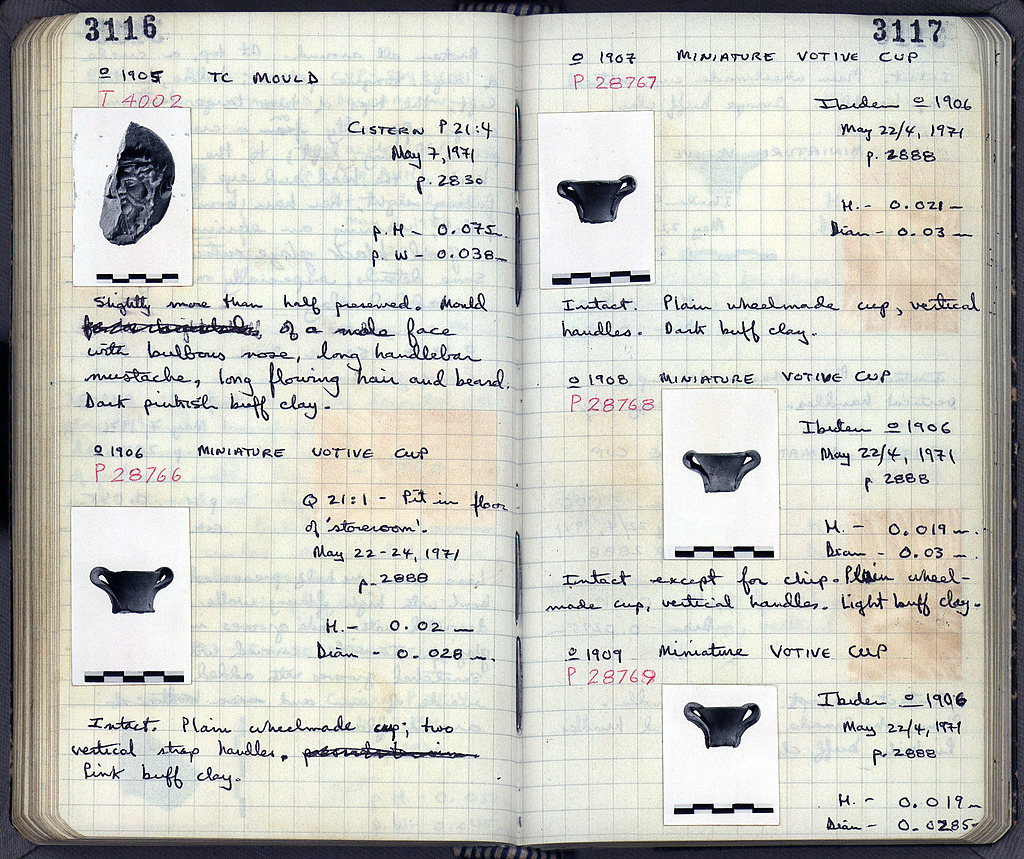 3116
o 1905 TC MOULD
T 4002
CISTERN P 21:4
May 7, 1971
p. 2830
p. H - 0.075
p. W - 0.038
Slightly more than half preserved. Mould
of a male face
with bulbous nose, long handlebar
mustache, long flowing hair and beard.
Dark pinkish buff clay.
o 1906 MINIATURE VOTIVE CUP
P 28766
Q 21:1 - Pit in floor
of 'storeroom'.
May 22-24, 1971
p. 2888
H. - 0.02 m
Diam - 0.028 m.
Intact. Plain wheelmade cup; two
vertical strap handles.
Pink buff clay.
3117
o 1907 MINIATURE VOTIVE CUP
P 28767
Ibidem o 1906
May 22/4, 1971
p. 2888
H. - 0.021 m
Diam - 0.03 m
Intact. Plain wheelmade cup, vertical
handles. Dark buff clay.
o 1908 MINIATURE VOTIVE CUP
P 28768
Ibidem o 1906
May 22/4, 1971
p 2888
H. - 0.019 m.
Diam - 0.03 m
Intact except for chip. Plain wheel-
made cup, vertical handles. Light buff clay.
o 1909 Miniature VOTIVE CUP
P 28769
Ibidem o 1906
May 22/4, 1971
p. 2888
H. - 0.019 m
Diam - 0.0285